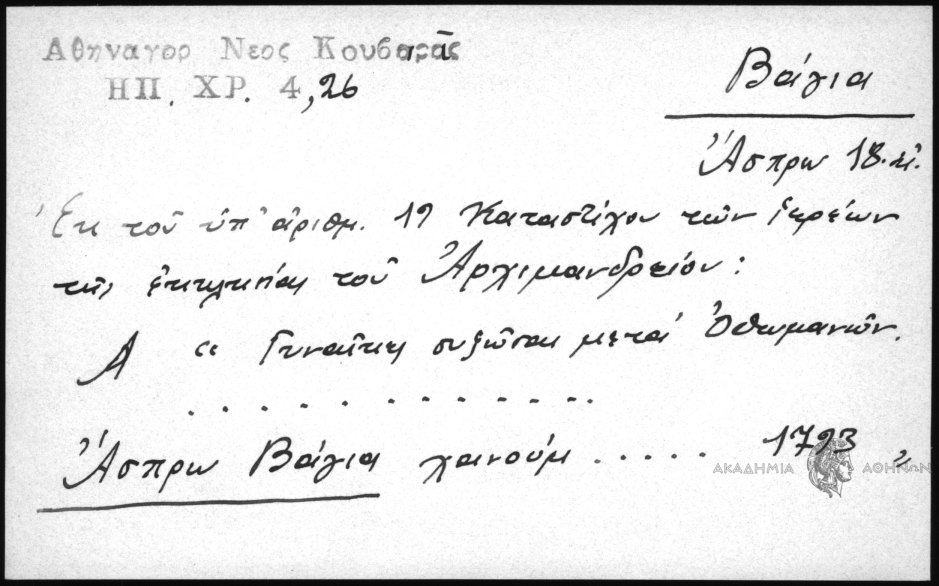 Αθηναγορ Νεος Κουβαρᾶς
ΗΠ. ΧΡ. 4,26
Βάγια
Ἄσπρω 18.
Ἐκ τοῦ ὑπ' ἀριθμ. 19 Καταστίχου τῶν ἱερέων
τῆς ἐκκλησίας τοῦ Ἀρχιμανδρείου:
Α " Γυναῖκες συζῶσαι μετά Ὀθωμανῶν.
. . . . . . . . . . . . .
Ἄσπρω Βάγια χανούμ ..... 1793
ΑΚΑΔΗΜΙΑ ΑΘΗΝΩΝ